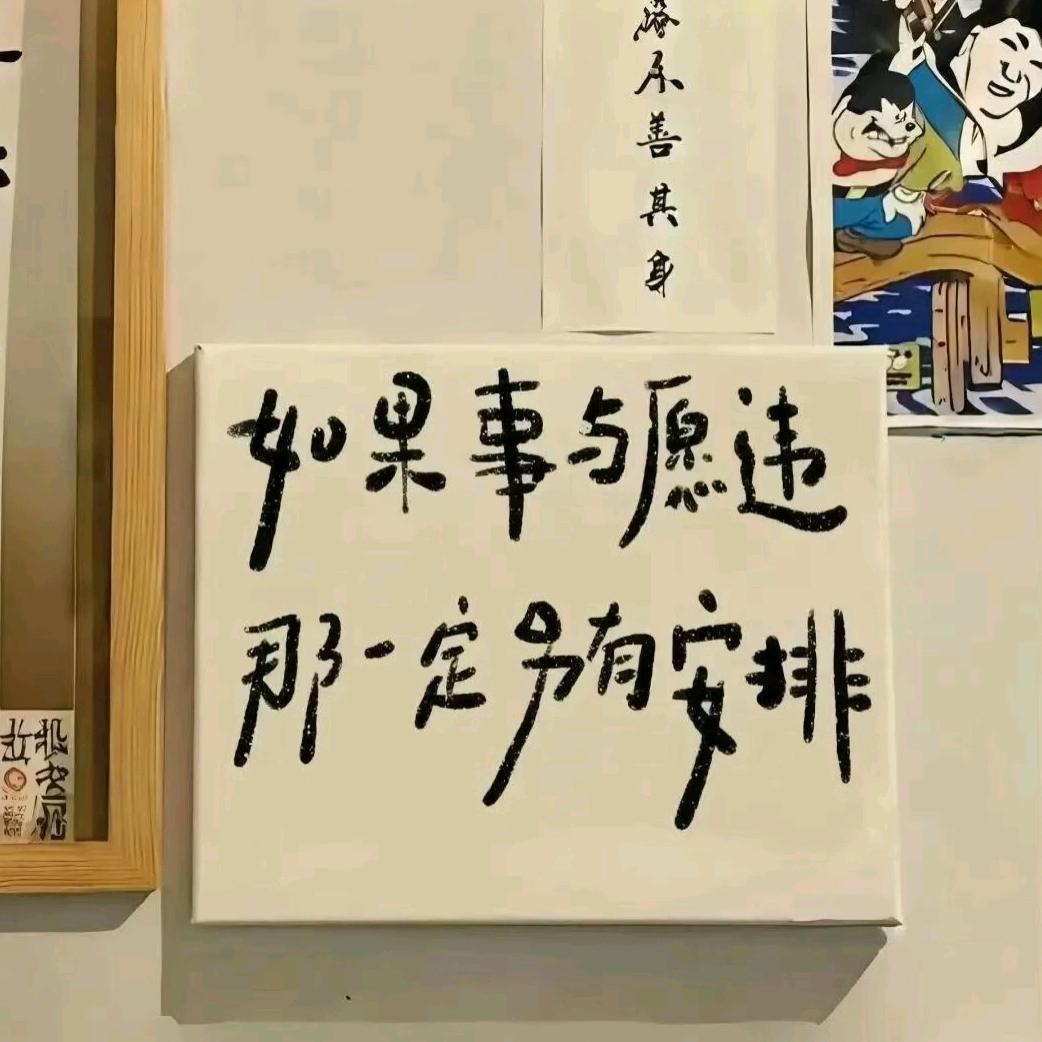 落不善其身
如果事与愿违
那一定另有安排